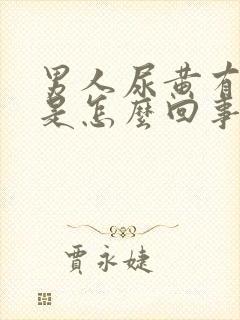 男人尿黄有
是怎麼回事
賈永婕